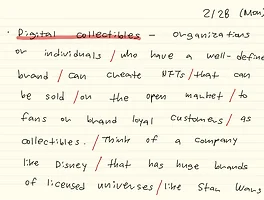 2/28 (Mon)
· Digital collectibles – organizations
or individuals / who have a well-define
brand / can create NFTs / that can
be sold / on the open market / to
fans or brand loyal customers / as
collectibles. / Think of a company
like Disney / that has huge brands
of licensed universes / like Star Wars